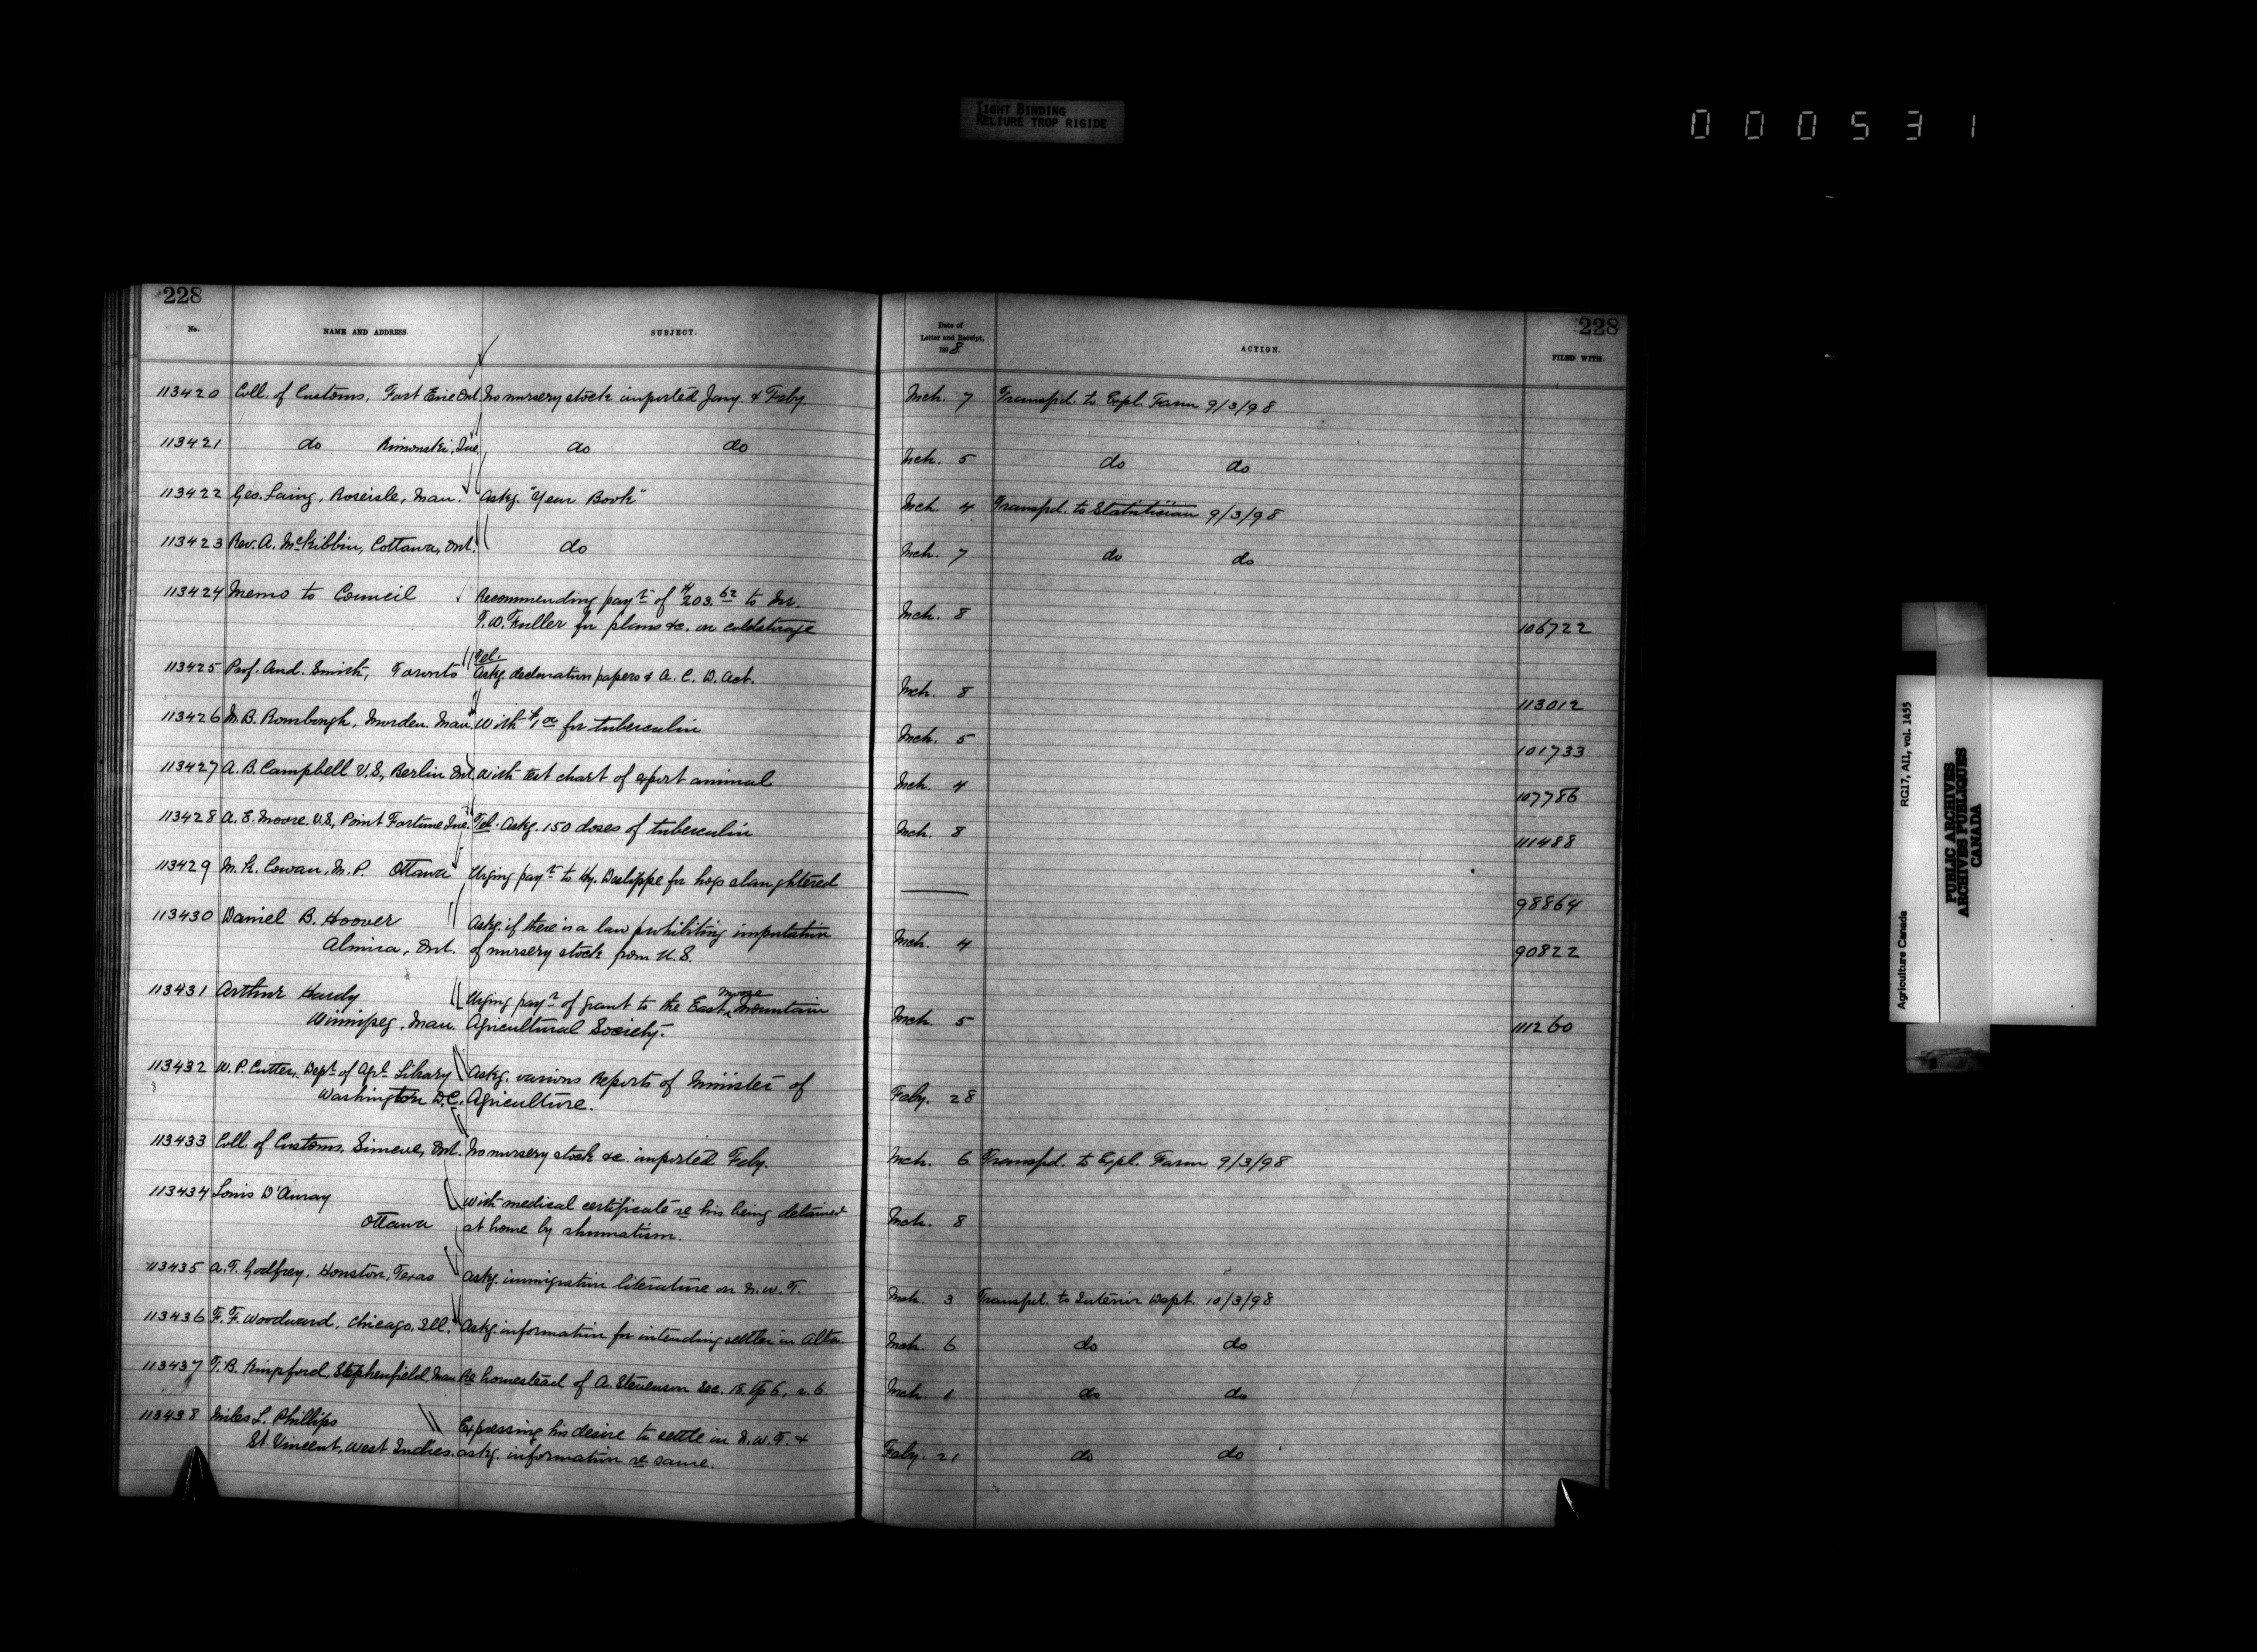 TIGHT BINDING
RELIURE TROP RIGIDE
000531
228
No. NAME AND ADDRESS. SUBJECT.
113420 Coll. of Customs, Fort Erie Ont. No nursery stock imported Jany. & Feby.
113421 do Rimouski, Que. do do
113422 Geo. Laing, Roseisle, Man. Askg. "Year Book"
113423 Rev. A. McKibbin, Cottawa, Ont. do
113424 Memo to Council Recommending payt. of $203.62 to Mr.
T.W. Fuller for plans &c. on coldstorage
113425 Prof. And. Smith, Toronto Tel.
Askg. declaration papers & A. C. D. Act.
113426 M.B. Rombough, Morden. Man. With $1 00 for tuberculin
113427 A.B. Campbell V.S., Berlin Ont. With test chart of export animal
113428 A.E. Moore. V.S., Point Fortune Que. Tel. Askg. 150 doses of tuberculin
113429 M.K. Cowan, M.P. Ottawa Urging payt. to Hy. Deslippe for hogs slaughtered
113430 Daniel B. Hoover Askg. if there is a law prohibiting importation
Almira, Ont. of nursery stock from U.S.
113431 Arthur Hardy Urging payt. of grant to the East Moose Mountain
Winnipeg, Man. Agricultural Society.
113432 W.P. Cutter, Dept. of Agl. Library Askg. various Reports of Minister of
Washington D.C. Agriculture.
113433 Coll. of Customs, Simcoe, Ont. No nursery stock &c. imported Feby.
113434 Louis D'Auray With medical certificate re his being detained
Ottawa at home by rhumatism.
113435 A.T. Godfrey. Houston, Texas Askg. immigration literature on N.W.T.
113436 F.F. Woodward, Chicago, Ill. Askg. information for intending settler in Alta.
113437 T.B. Kingsford, Stephenfield, Man Re homestead of A. Stevenson Sec. 18. Tp 6, r. 6.
113438 Miles L. Phillips Expressing his desire to settle in N.W.T. &
St. Vincent, West Indies. askg. information re same.
228
Date of
Letter and Receipt,
1898
ACTION. FILED WITH.
Mch. 7 Transfd. to Expl. Farm 9/3/98
Mch. 5 do do
Mch. 4 Transfd. to Statistician 9/3/98
Mch. 7 do do
Mch. 8 106722
Mch. 8 113012
Mch. 5 101733
Mch. 4 107786
Mch. 8 111488
98864
Mch. 4 90822
Mch. 5 111260
Feby. 28
Mch. 6 Transfd. to Expl. Farm 9/3/98
Mch. 8
Mch. 3 Transfd. to Interior Dept. 10/3/98
Mch. 6 do do
Mch. 1 do do
Feby. 21 do do
Agriculture Canada RG17, AII, vol. 1455
PUBLIC ARCHIVES
ARCHIVES PUBLIQUES
CANADA